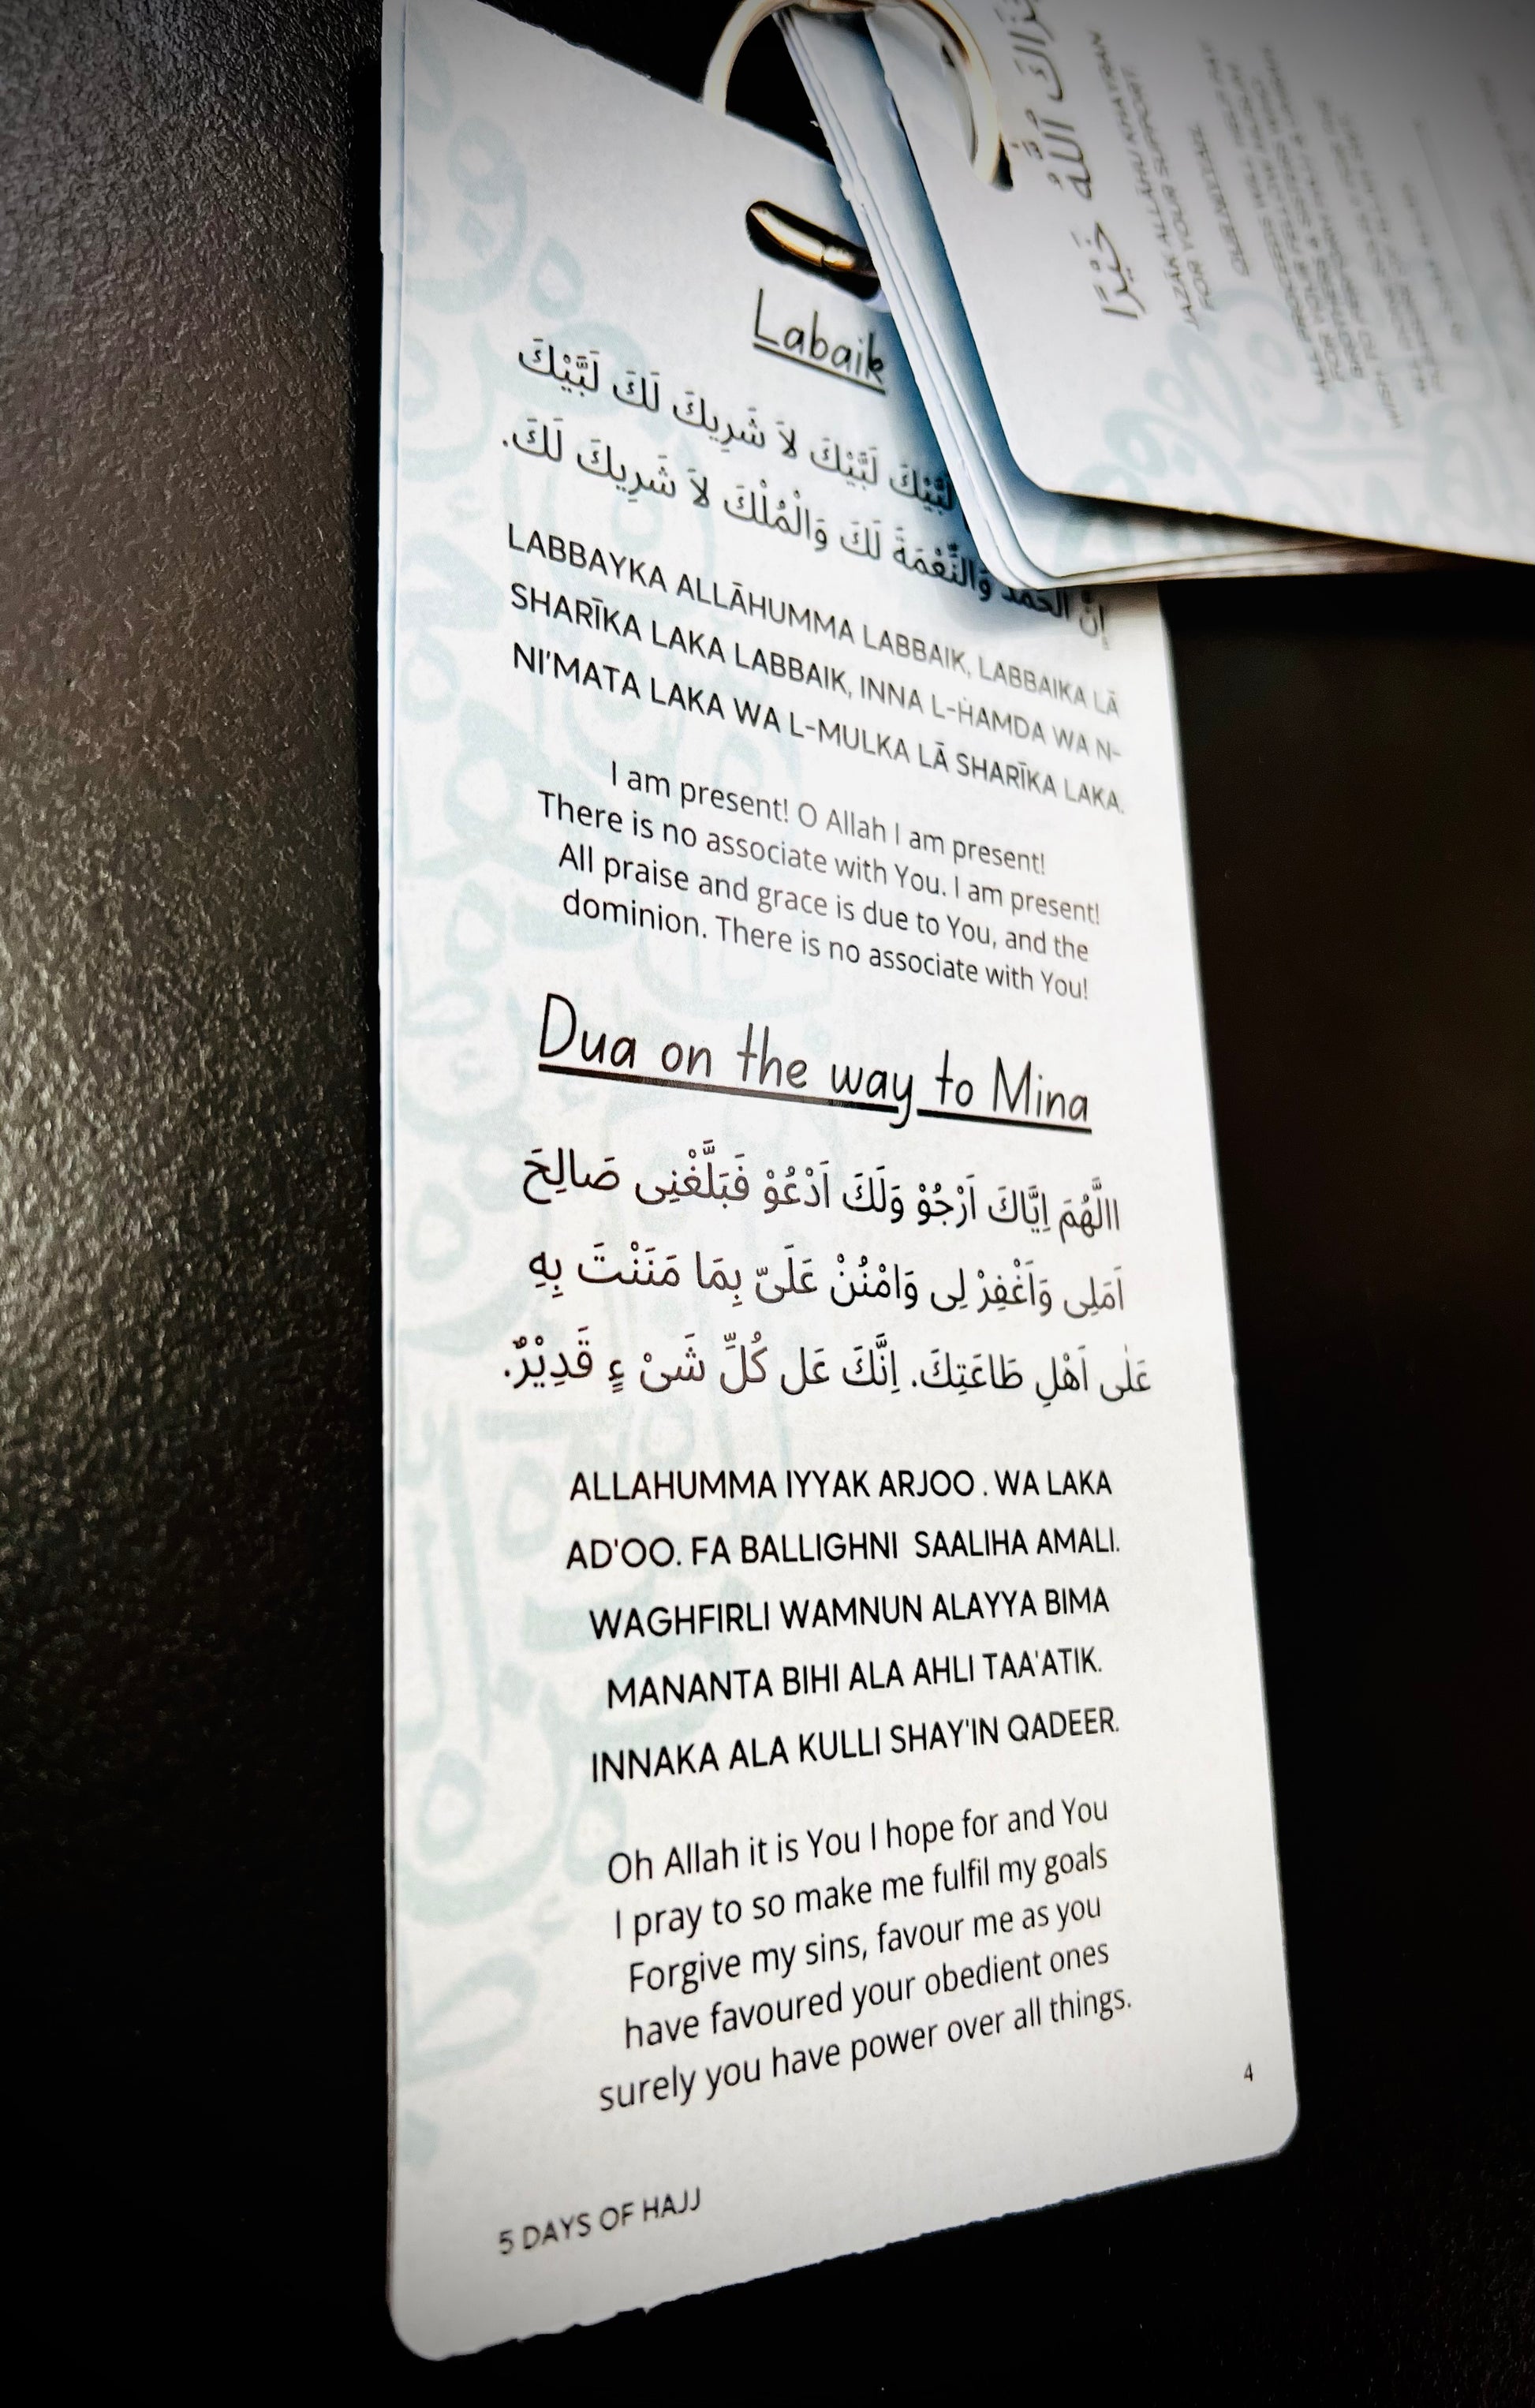 Labaik
لَبَّيْكَ لَبَّيْكَ لاَ شَرِيكَ لَكَ لَبَّيْكَ
إِنَّ الْحَمْدَ وَالنِّعْمَةَ لَكَ وَالْمُلْكَ لاَ شَرِيكَ لَكَ.
LABBAYKA ALLĀHUMMA LABBAIK, LABBAIKA LĀ
SHARĪKA LAKA LABBAIK, INNA L-ḢAMDA WA N-
NI'MATA LAKA WA L-MULKA LĀ SHARĪKA LAKA.
I am present! O Allah I am present!
There is no associate with You. I am present!
All praise and grace is due to You, and the
dominion. There is no associate with You!
Dua on the way to Mina
االَّهُمَ اِيَّاكَ اَرْجُوْ وَلَكَ اَدْعُوْ فَبَلَّغْنِى صَالِحَ
اَمَلِى وَاَغْفِرْ لِى وَامْنُنْ عَلَىّ بِمَا مَنَنْتَ بِهِ
عَلٰى اَهْلِ طَاعَتِكَ. اِنَّكَ عَل كُلِّ شَىْ ءٍ قَدِيْرٌ.
ALLAHUMMA IYYAK ARJOO . WA LAKA
AD'OO. FA BALLIGHNI SAALIHA AMALI.
WAGHFIRLI WAMNUN ALAYYA BIMA
MANANTA BIHI ALA AHLI TAA'ATIK.
INNAKA ALA KULLI SHAY'IN QADEER.
Oh Allah it is You I hope for and You
I pray to so make me fulfil my goals
Forgive my sins, favour me as you
have favoured your obedient ones
surely you have power over all things.
4
5 DAYS OF HAJJ
اللَّهُ خَيْرًا
JAZĀK ALLĀHU KHAYRAN
FOR YOUR SUPPORT.